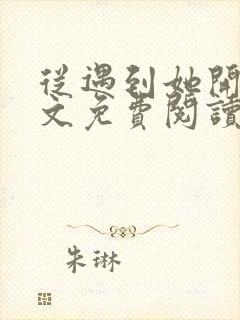 從遇到她開
文免費閱讀
朱琳